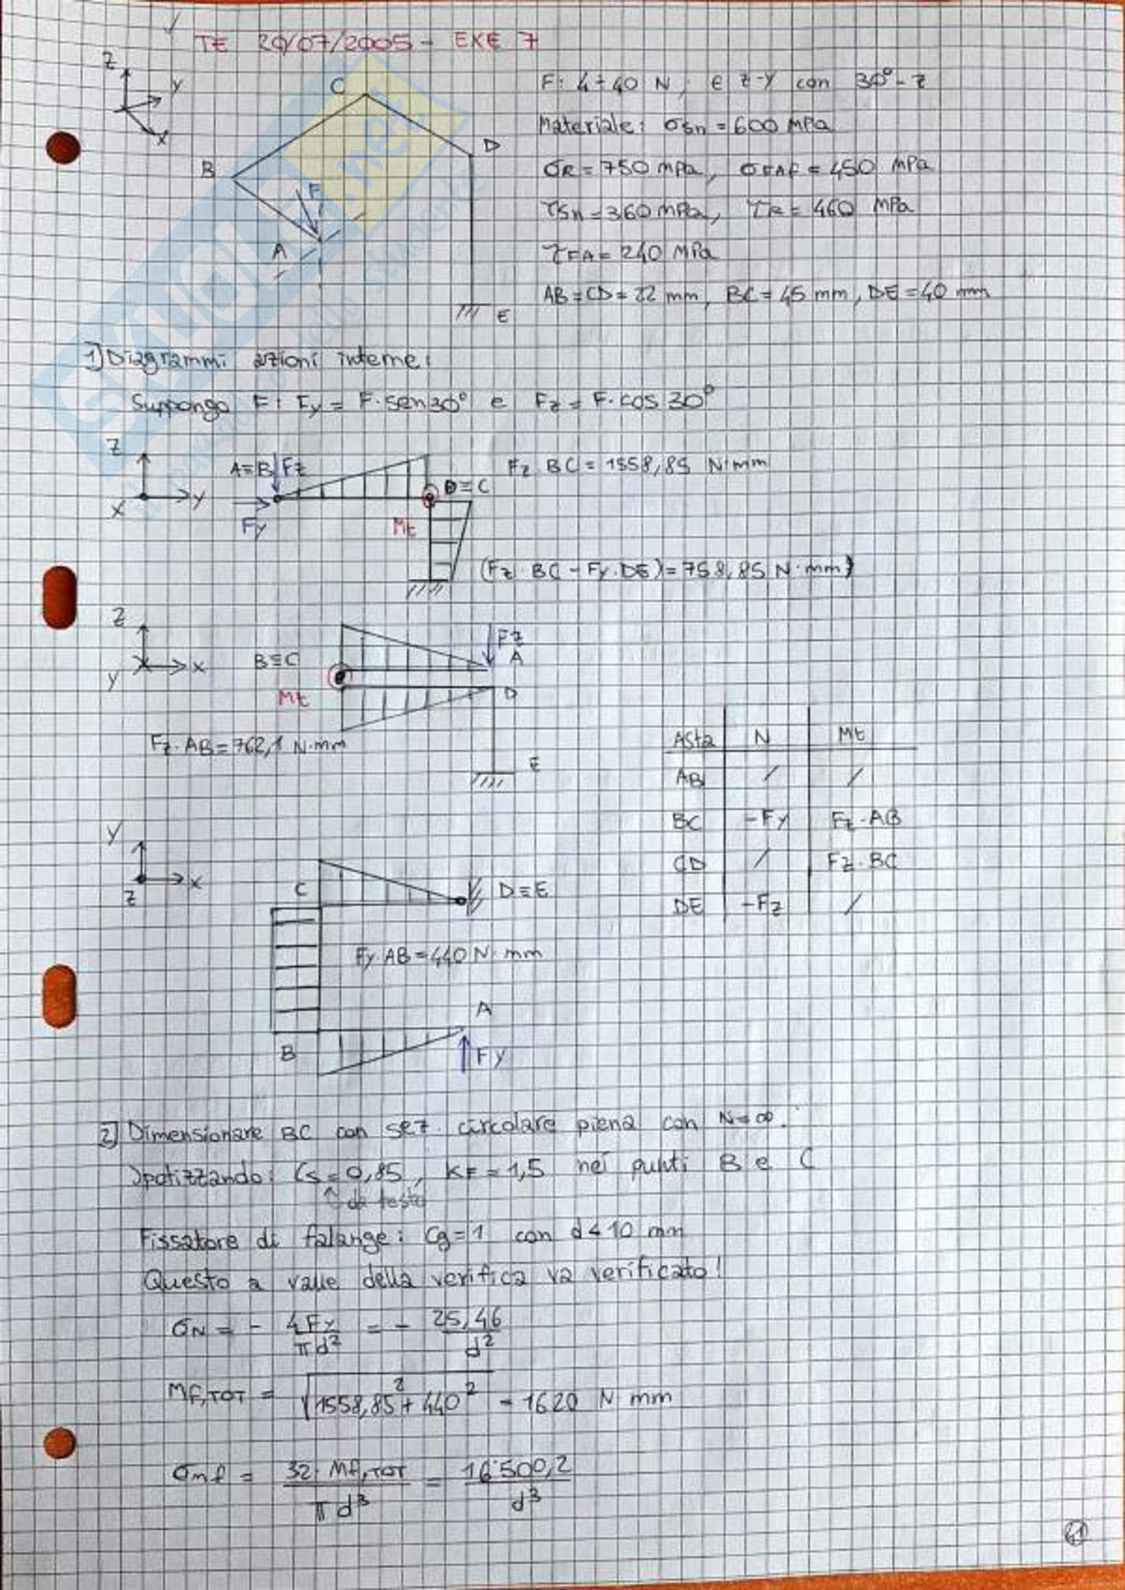 TE 20/07/2005 - EXE 7
Z
Y
X
C
B
D
F
A
E
F: 4÷40 N, ∈ z-y con 30°-z
Materiale: σsn = 600 MPa
σR = 750 MPa, σFAF = 450 MPa
τSN = 360 MPa, τR = 460 MPa
τFA = 240 MPa
AB = CD = 22 mm, BC = 45 mm, DE = 40 mm
1) Diagrammi azioni interne:
Suppongo F: Fy = F·sen30° e Fz = F·cos30°
Z
Y
X
A≡B Fz
Fy
D≡C
Mt
Fz BC = 1558,85 N·mm
(Fz·BC - Fy·DE) = 758,85 N·mm)
Z
X
Y
B≡C
Mt
Fz
A
D
E
Fz·AB = 762,1 N·mm
Asta N Mt
AB / /
BC -Fy Fz·AB
CD / Fz·BC
DE -Fz /
Y
X
Z
C
D≡E
Fy·AB = 440 N·mm
A
B
Fy
2) Dimensionare BC con sez. circolare piena con N=∞.
Ipotizzando: Cs = 0,85, KF = 1,5 nei punti B e C
↑ da testo
Fissatore di falange: Cg = 1 con d<10 mm
Questo a valle della verifica va verificato!
σN = - 4Fy/πd² = - 25,46/d²
Mf,TOT = √1558,85² + 440² = 1620 N·mm
σmf = 32·Mf,TOT/πd³ = 16'500,2/d³
61